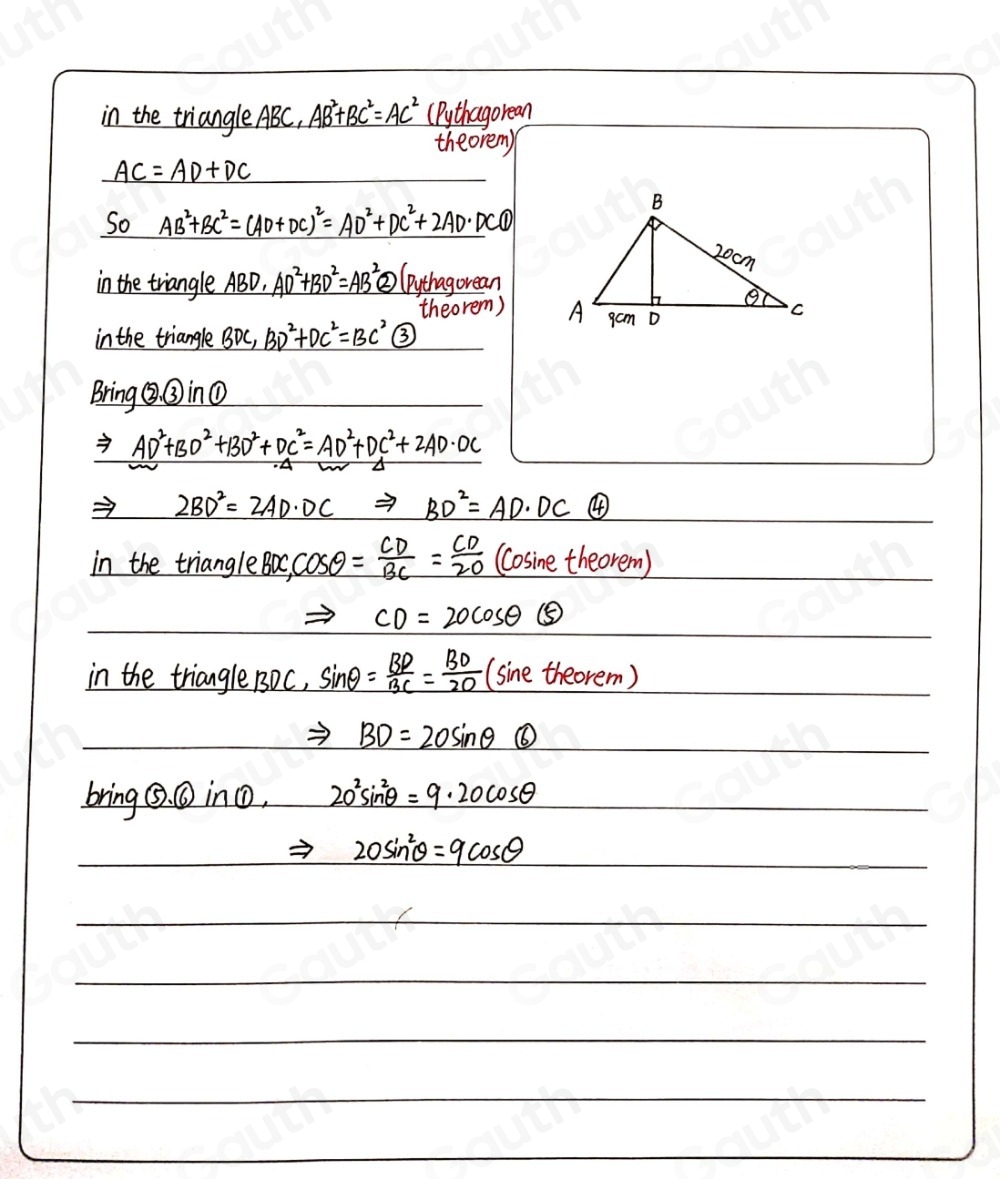 in the triangle ABC, AB²+BC²=AC² (Pythagorean
theorem)
AC = AD+DC
So AB²+BC²=(AD+DC)²=AD²+DC²+2AD·DC①
in the triangle ABD, AD²+BD²=AB²②(Pythagorean
theorem)
in the triangle BDC, BD²+DC²=BC² ③
Bring②.③in①
⇒ AD²+BD²+BD²+DC²=AD²+DC²+2AD·DC
⇒ 2BD²=2AD·DC ⇒ BD²=AD·DC ④
in the triangle BDC, COSθ = CD/BC = CD/20 (Cosine theorem)
⇒ CD = 20COSθ ⑤
in the triangle BDC, Sinθ = BD/BC = BD/20 (sine theorem)
⇒ BD = 20Sinθ ⑥
bring⑤.⑥ in①, 20²sin²θ = 9·20COSθ
⇒ 20Sin²θ=9COSθ
B
20cm
θ
A
9cm
D
C
Gauth